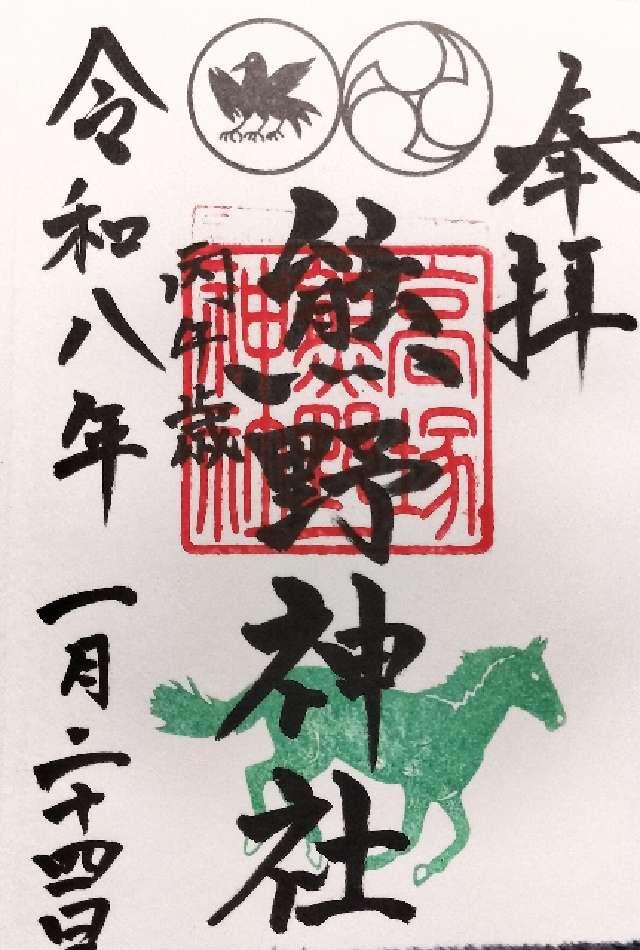 奉拝
熊野神社
高塚
熊野
神社
丙午歳
令和八年 一月二十四日